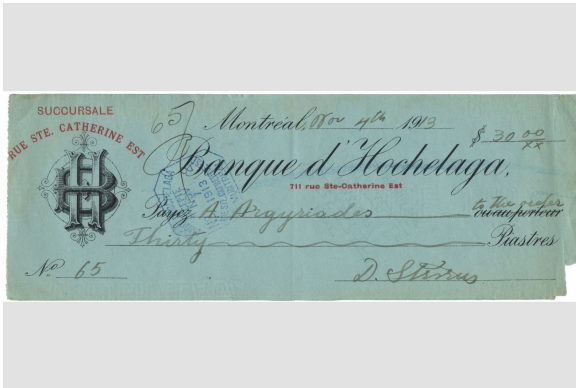 SUCCURSALE
RUE STE. CATHERINE EST
65
Montréal, Nov 4th 1913
$ 30 00/xx
Banque d'Hochelaga,
711 rue Ste-Catherine Est
Payez A Argyriades to the order ou au porteur
Thirty Piastres
No 65
D.